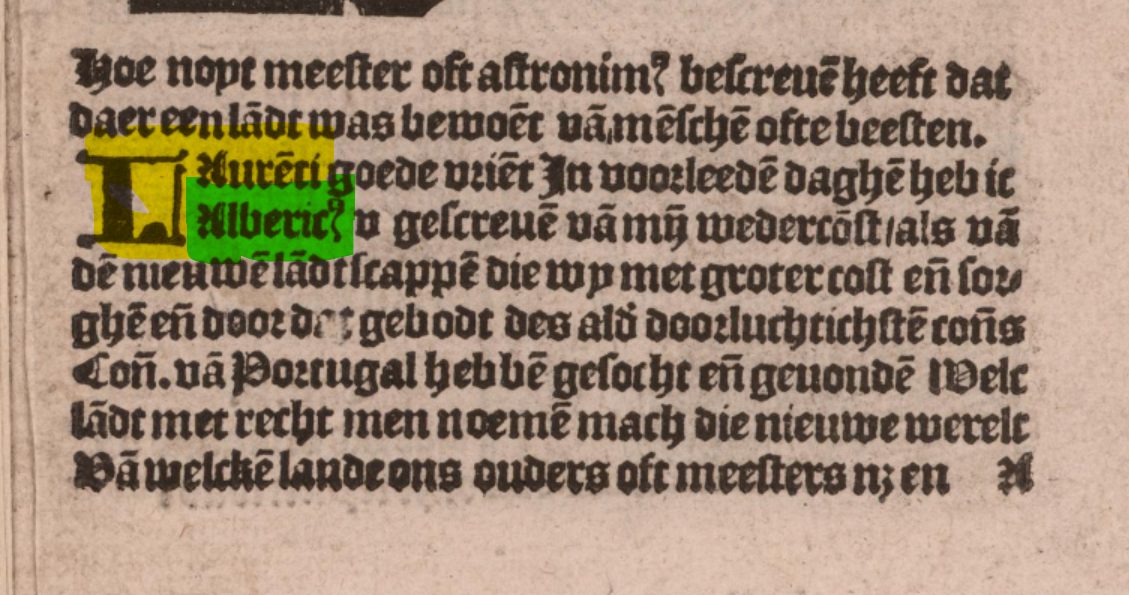 Hoe noyt meester oft astronimꝰ bescreuē heeft dat
daer een lādt was bewoēt vā mēschē ofte beesten.
LAurēti goede vriēt In voorleedē daghē heb ic
Albericꝰ v gescreuē vā mij wedercōst/als vā
dē nieuwē lādtscappē die wy met groter cost eñ sor⸗
ghē eñ door dat gebodt des alď doorluchtichstē coñs
Coñ. vā Portugal hebbē gesocht eñ geuondē Welc
lādt met recht men noemē mach die nieuwe werelt
Vā welckē lande ons ouders oft meesters nꝫ en A